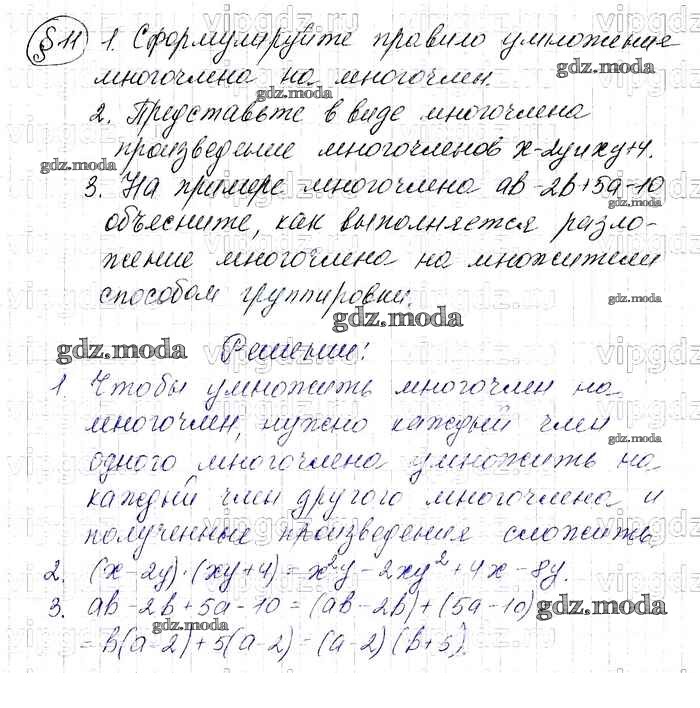 § 11 1. Сформулируйте правило умножения
многочлена на многочлен.
2. Представьте в виде многочлена
произведение многочленов x-2y и xy+4.
3. На примере многочлена ab-2b+5a-10
объясните, как выполняется разло-
жение многочлена на множители
способом группировки.
Решение:
1 Чтобы умножить многочлен на
многочлен, нужно каждый член
одного многочлена умножить на
каждый член другого многочлена и
полученные произведения сложить.
2. (x-2y)·(xy+4)=x²y-2xy²+4x-8y.
3. ab-2b+5a-10=(ab-2b)+(5a-10)
=b(a-2)+5(a-2)=(a-2)(b+5).
gdz.moda
gdz.moda
gdz.moda
gdz.moda
gdz.moda
gdz.moda
gdz.moda
gdz.moda
gdz.moda
gdz.moda
gdz.moda